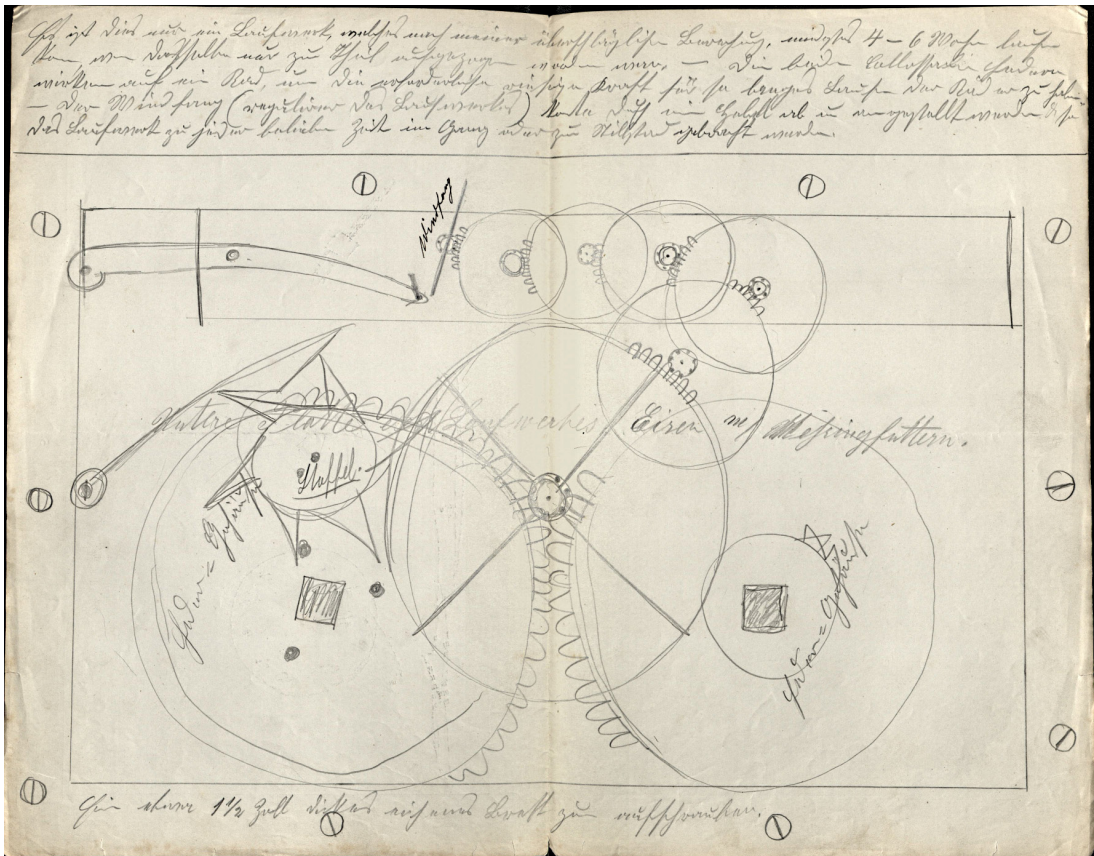 Es ist dies nur ein Laufwerk, welches nach meiner überschläglichen Berechnung, mindestens 4 – 6 Wochen laufen
kann, wenn dasselbe nur zu Theil aufgezogen worden wäre. – Die beiden collossalen Federn
wirken auf ein Rad, um die erforderliche riesige Kraft für so langes Laufen der Räder zu
– Der Windfang (regulierer des Laufwerkes) kann durch ein Hebel ab u angestellt werden
das Laufwerk zu jeder beliebe Zeit im Gang oder zu Stillstand gebracht werden.
Windfang
Untere Platte des Laufwerkes. Eisen m/ Messingfuttern.
Staffel.
Feder = Gehäuse
Feder = Gehäuse
Ein etwa 1 1/2 Zoll dickes eichenes Brett zum aufschrauben.